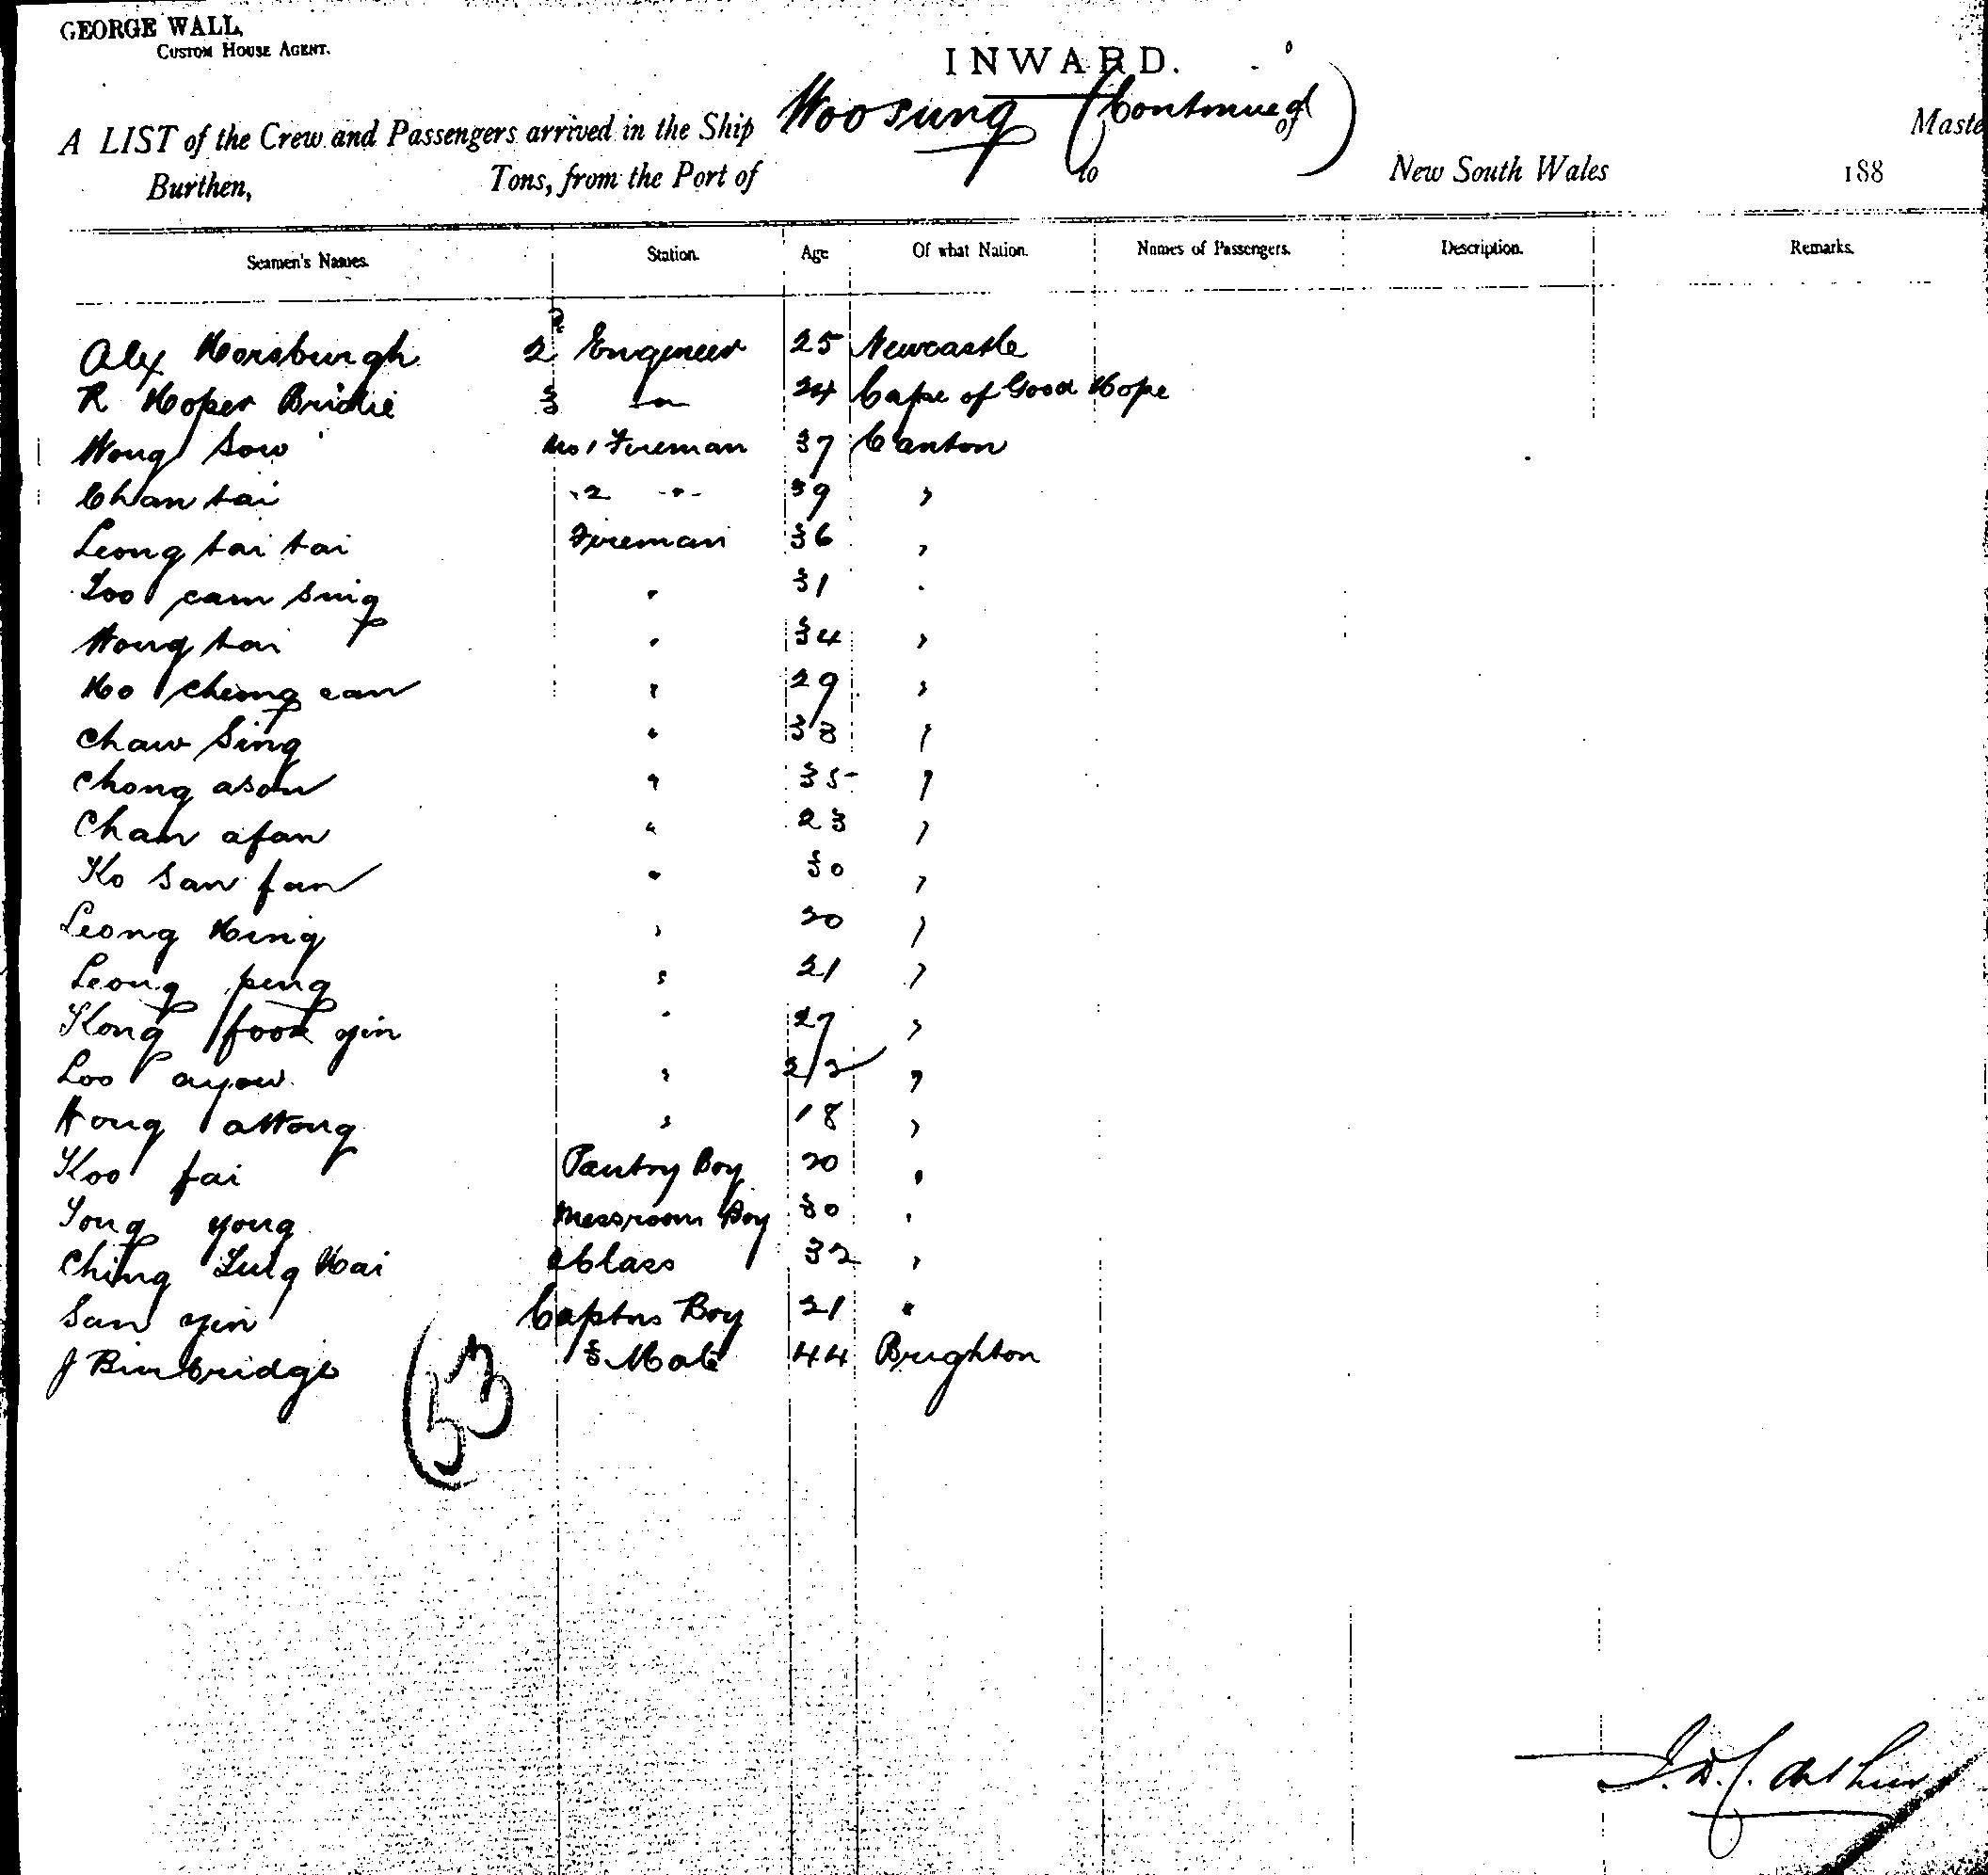 GEORGE WALL,
CUSTOM HOUSE AGENT.
INWARD.
A LIST of the Crew and Passengers arrived in the Ship Woosung (Continued) of Maste
Burthen, Tons, from the Port of to New South Wales 188
Seamen's Names. Station. Age Of what Nation. Names of Passengers. Description. Remarks.
Alex Horsburgh 2 Engineer 25 Newcastle
R Hoper Bridie 3 -do- 24 Cape of Good Hope
Wong Sow No 1 Fireman 37 Canton
Chan tai " 2 -"- 39 "
Leong tai tai Fireman 36 "
Loo cam sing " 31 "
Wong tai " 34 "
Ho Cheong can " 29 "
Chaw Sing " 38 "
Chong ason " 35 "
Chan afan " 23 "
Ko San fan " 30 "
Leong Hing " 20 "
Leong peng " 21 "
Kong fook yin " 27 "
Loo ayow " "
Hong attong " 18 "
Koo fai Pantry Boy 20 "
Yong yong Messroom Boy 30 "
Ching Hai 32 "
San yin Captns Boy 21 "
J Bimbridge 3 Mate 44 Brighton
(53
Arthur